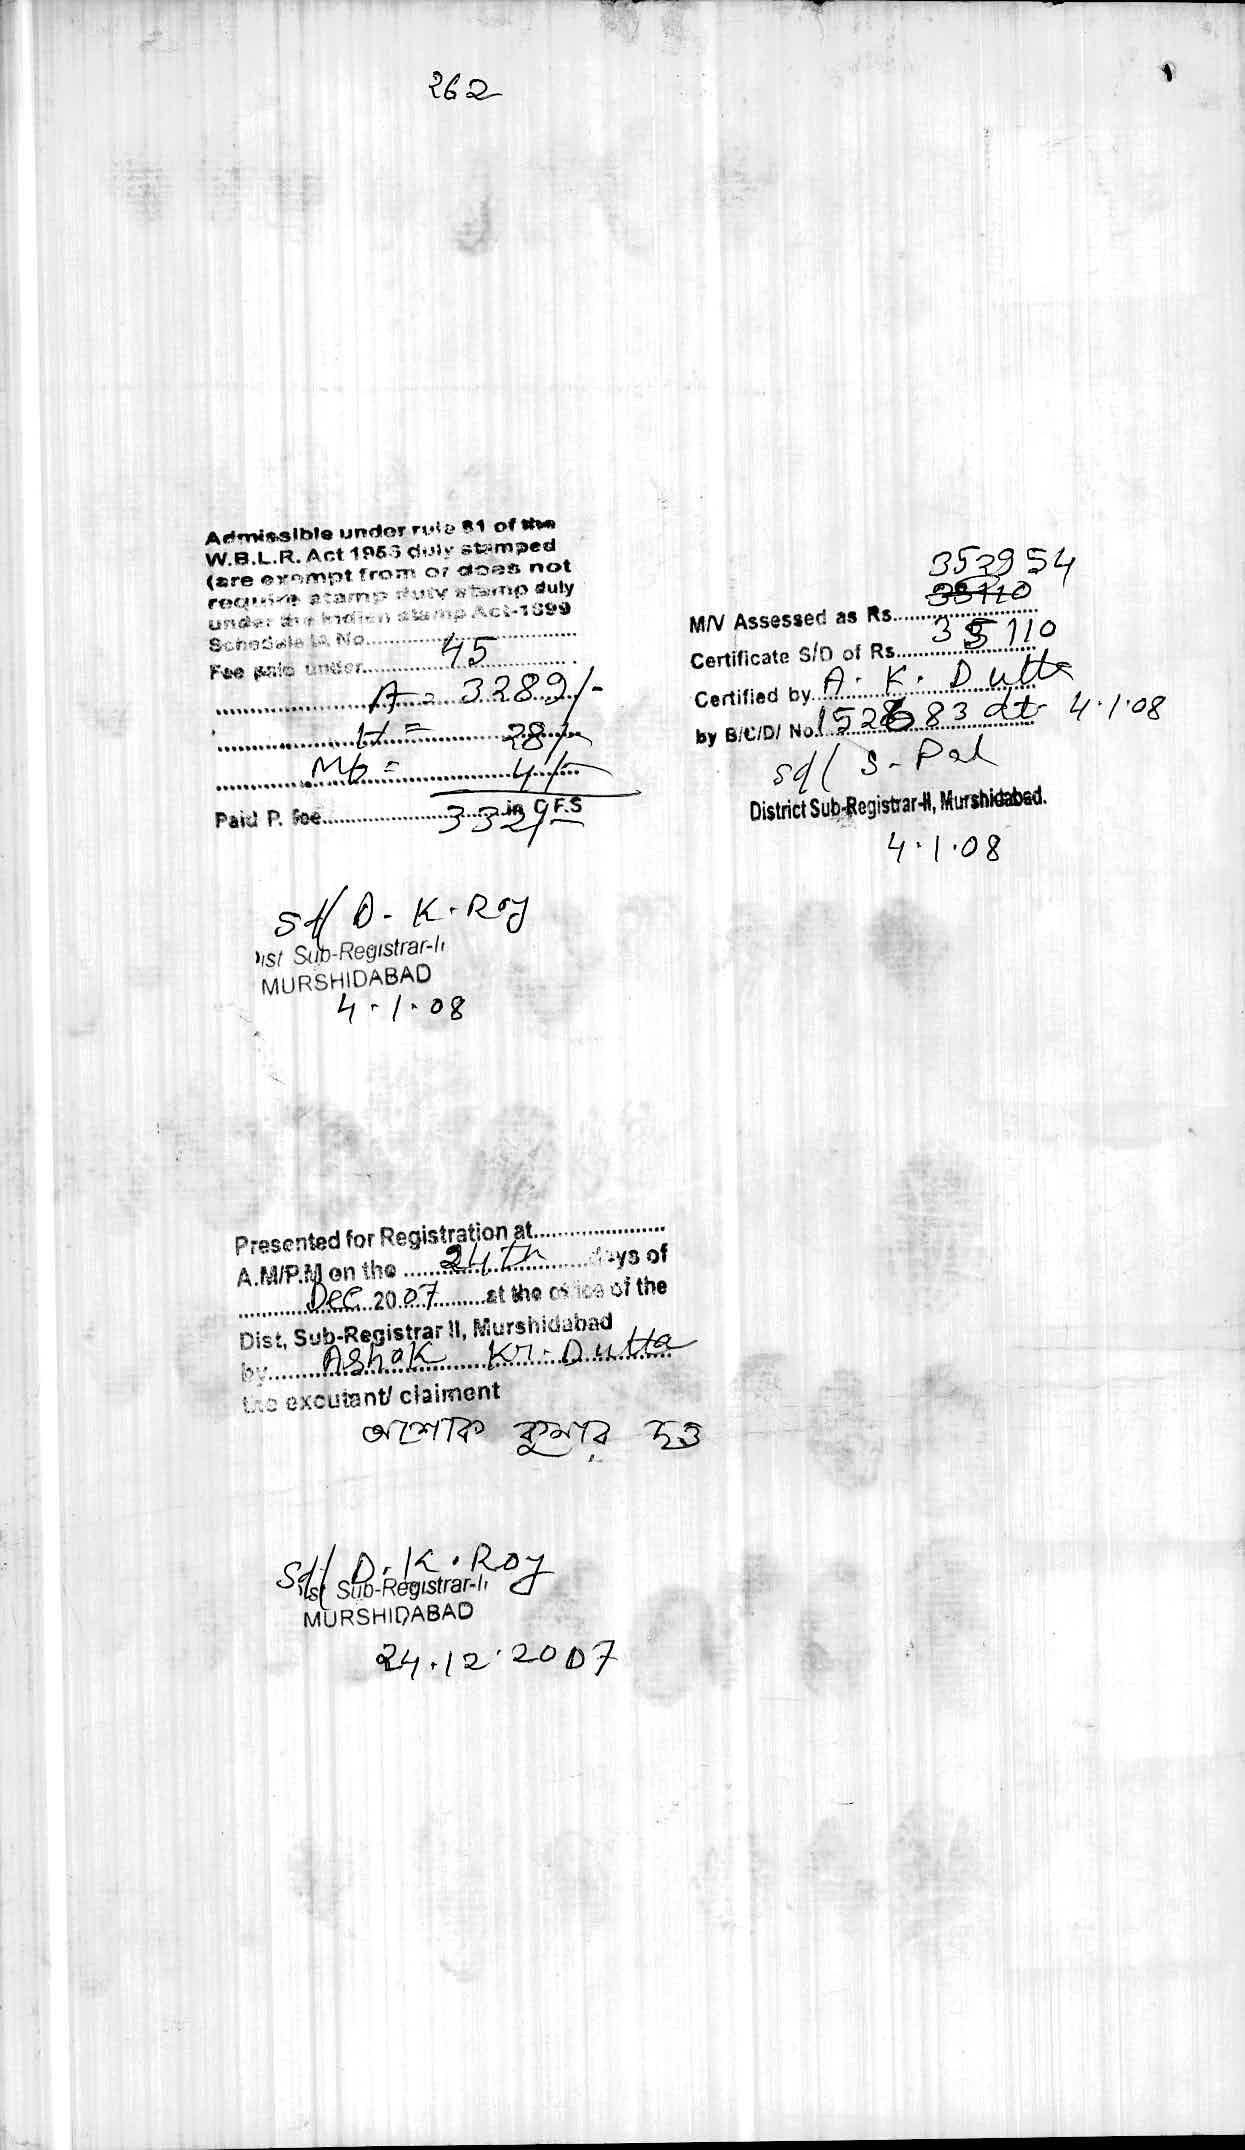 262
Admissible under rule 81 of the
W.B.L.R. Act 1956 duly stamped
(are exempt from or does not
require stamp duty stamp duly
under the Indian stamp Act-1899
Schedule IA No.............
Fee paid under............. 45
A = 3289/-
H = 28/-
Mb = 4/-
Paid P. fee............. in C F.S
3321/-
Sd/ D. K. Roy
Dist Sub-Registrar-II
MURSHIDABAD
4.1.08
352954
35110
M/V Assessed as Rs.............
Certificate S/D of Rs. 35110
Certified by A. K. Dutta
by B/C/D/ No. 152683 dt 4.1.08
Sd/ S. Pal
District Sub-Registrar-II, Murshidabad.
4.1.08
Presented for Registration at.............
A.M/P.M on the 24th days of
Dec 2007 at the office of the
Dist, Sub-Registrar II, Murshidabad
by Ashok Kr. Dutta
the excutant/ claiment
অশোক কুমার দত্ত
Sd/ D. K. Roy
Dist Sub-Registrar-II
MURSHIDABAD
24.12.2007